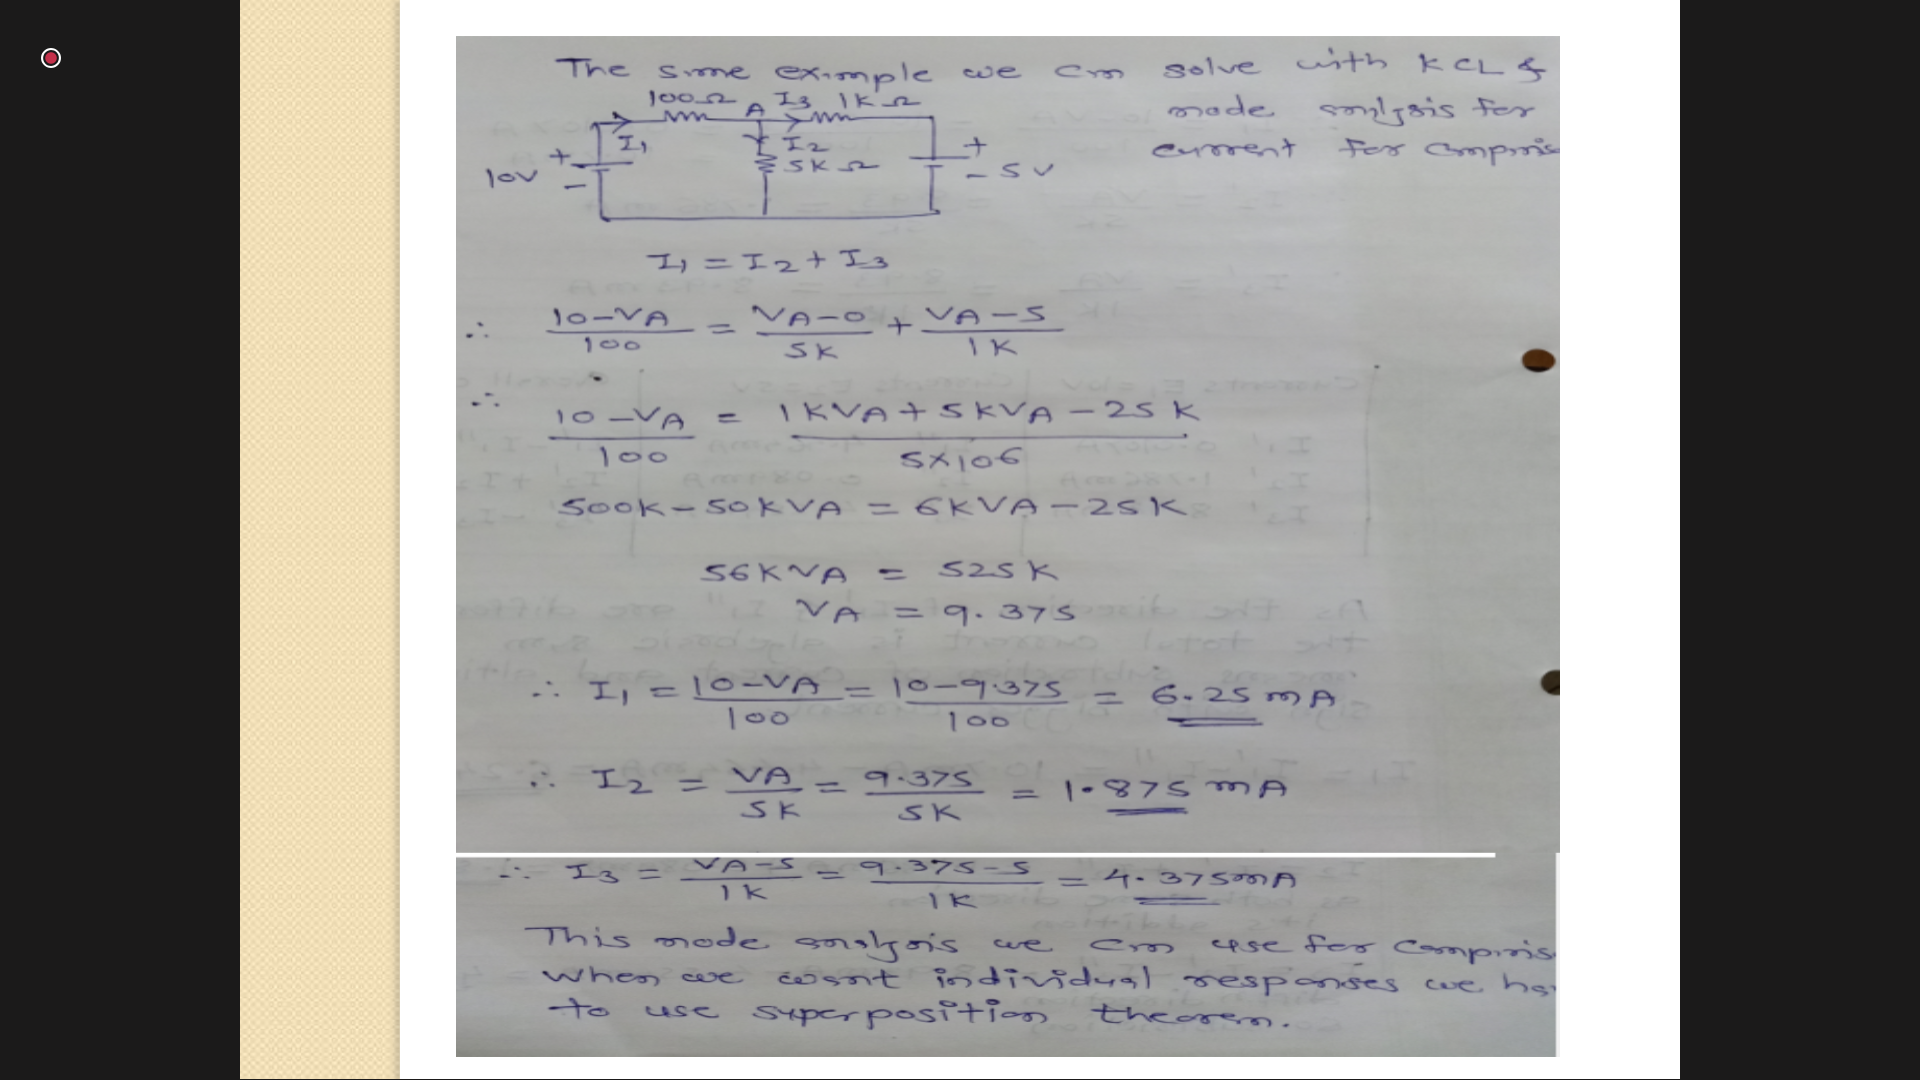 The same example we can solve with KCL &
node analysis for
current for comparis
100Ω A I3 1KΩ
I1 I2
5KΩ
10V + - + - 5V
I1 = I2 + I3
∴ (10-VA)/100 = (VA-0)/5K + (VA-5)/1K
∴ (10-VA)/100 = (1KVA + 5KVA - 25K)/5×10^6
500K - 50KVA = 6KVA - 25K
56KVA = 525K
VA = 9.375
∴ I1 = (10-VA)/100 = (10-9.375)/100 = 6.25 mA
∴ I2 = VA/5K = 9.375/5K = 1.875 mA
∴ I3 = (VA-5)/1K = (9.375-5)/1K = 4.375mA
This node analysis we can use for comparis
When we want individual responses we ha
to use superposition theorem.